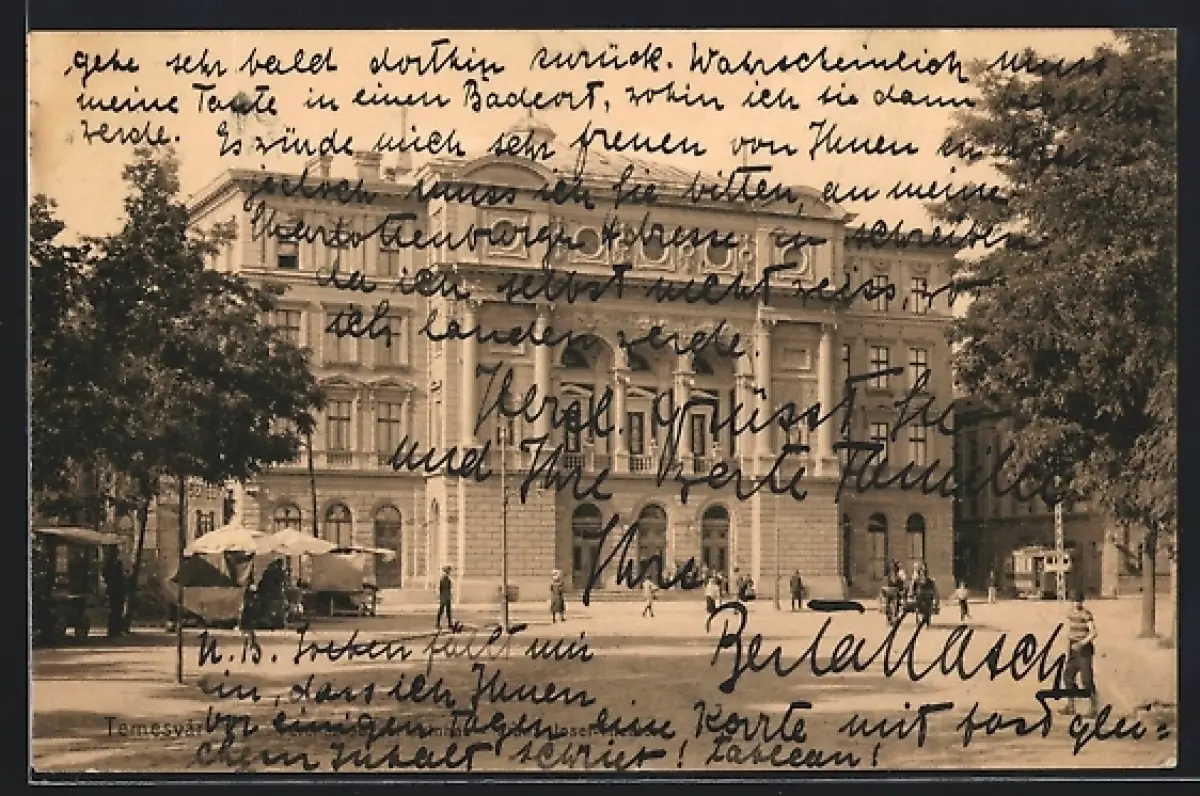 gehe sehr bald dorthin zurück. Wahrscheinlich muss
meine Tante in einen Badeort, wohin ich sie dann begleiten
werde. Es würde mich sehr freuen von Ihnen zu hören
jedoch muss ich Sie bitten, an meine
Charlottenburger Adresse zu schreiben
da ich selbst nicht weiss, wo
ich landen werde.
Herzl. grüsst Sie
und Ihre werte Familie
Ihre
Berta Nasch
N.B. Soeben fällt mir
ein, dass ich Ihnen
vor einigen Tagen eine Karte mit fast glei=
chem Inhalt schrieb! Tableau!
Temesvár